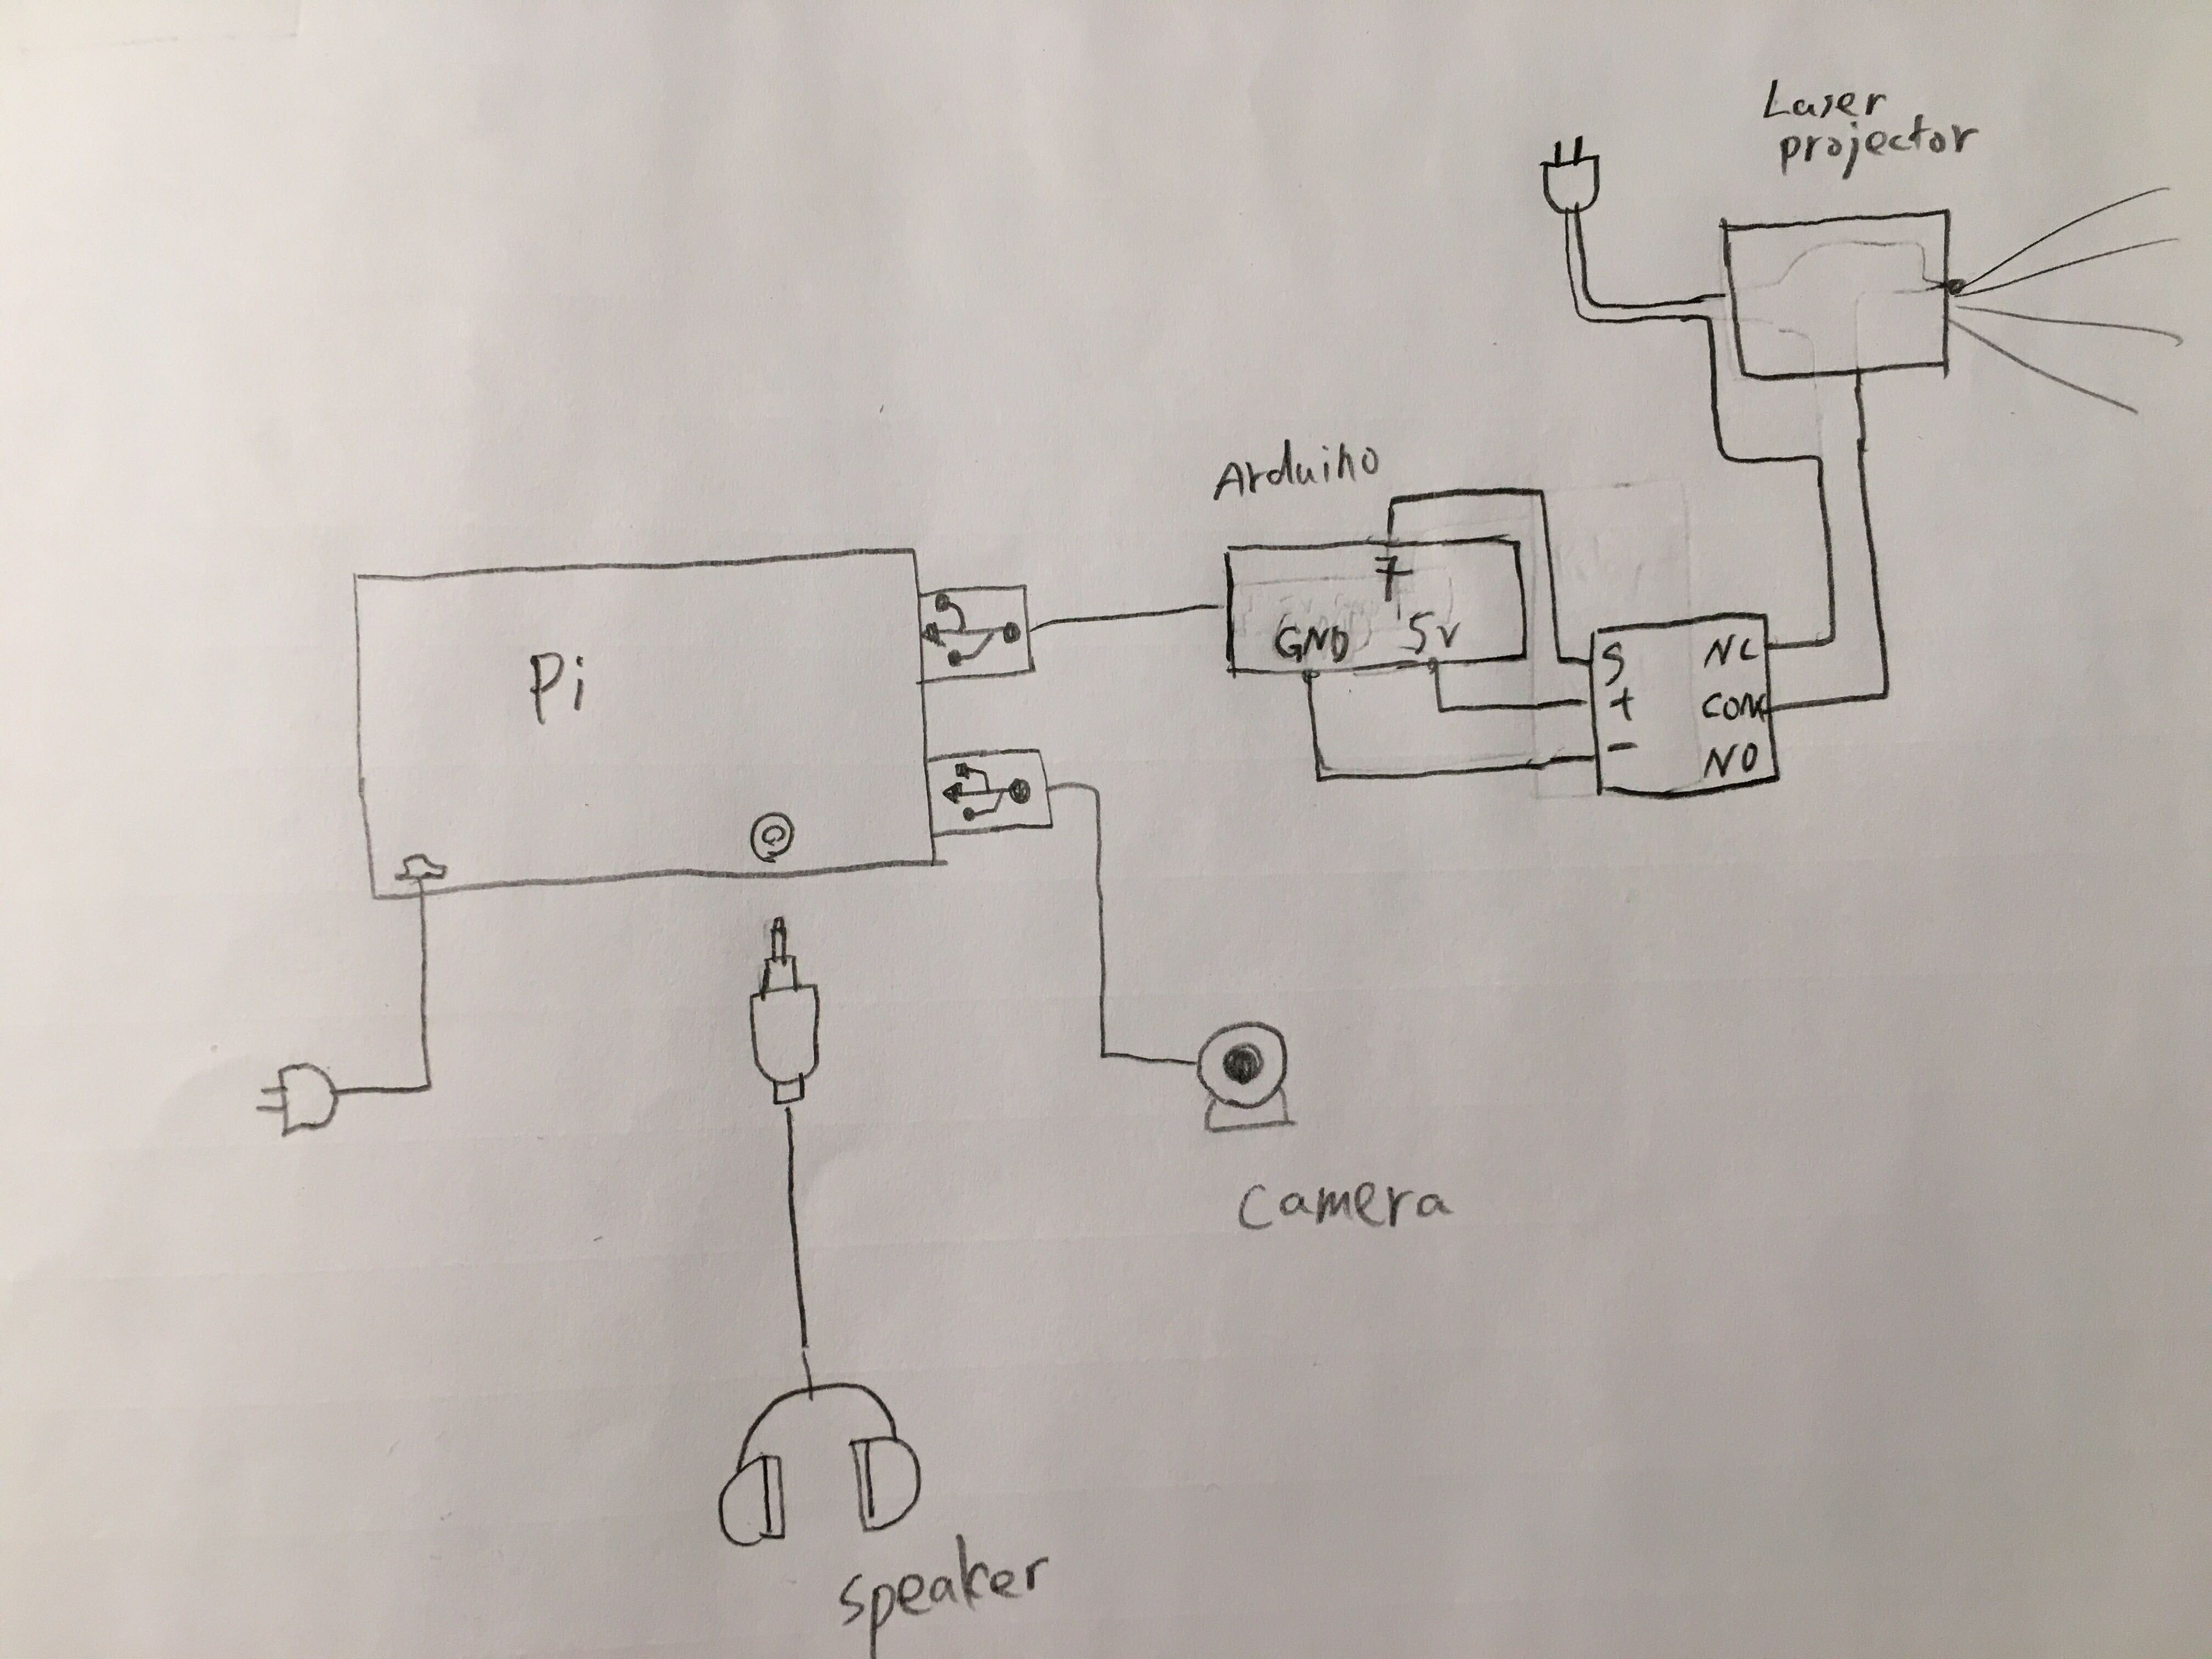 Laser
projector
Arduino
7
GND 5v
S NC
+ COM
- NO
Pi
camera
speaker